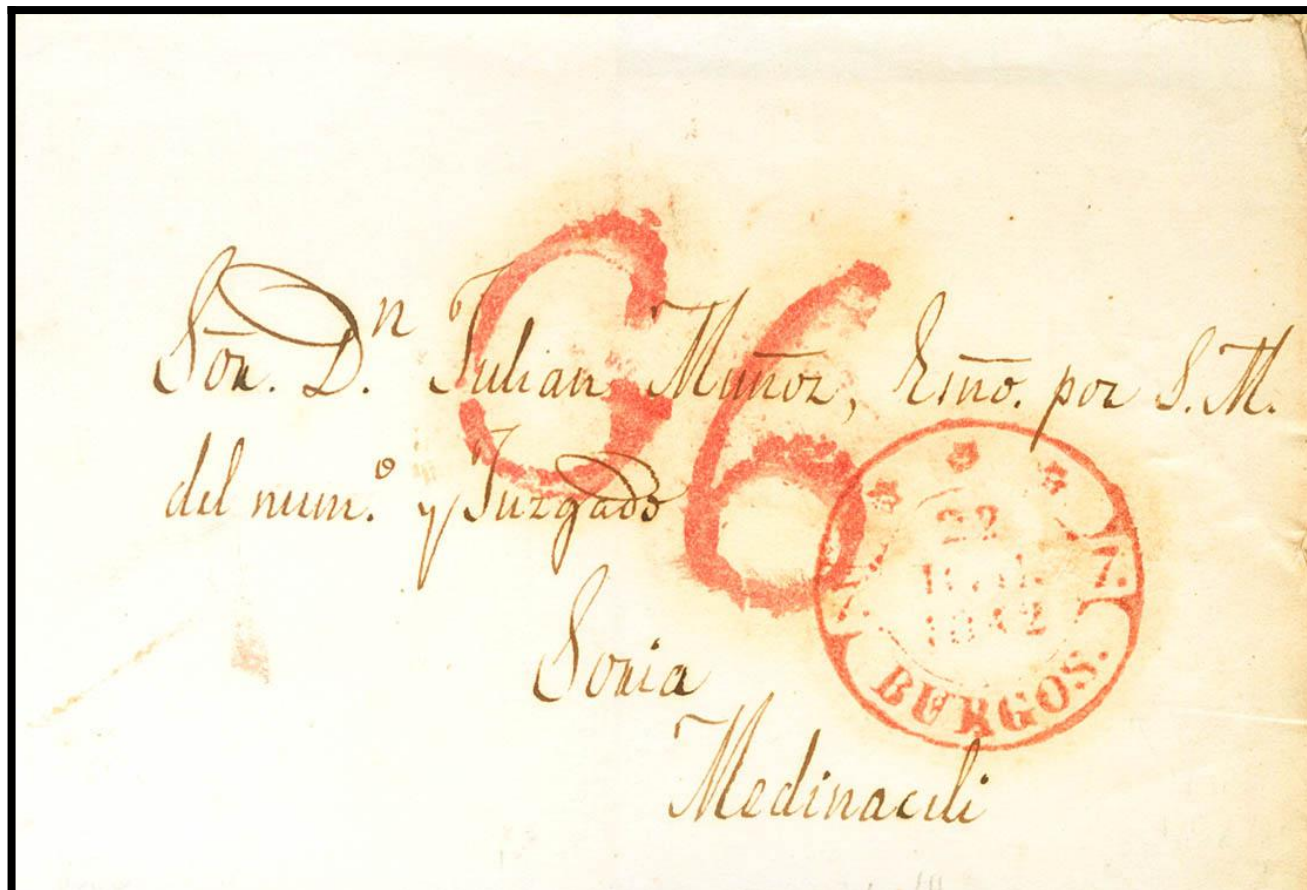 Sor. D.n Julian Muñoz, Esno. por S. M.
del num.o y Juzgado
Soria
Medinaceli
66
22
1842
BURGOS.